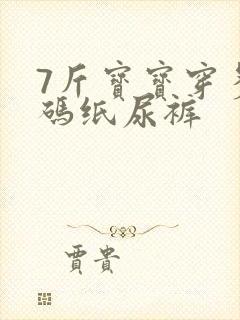 7斤寶寶穿
碼纸尿裤
賈貴